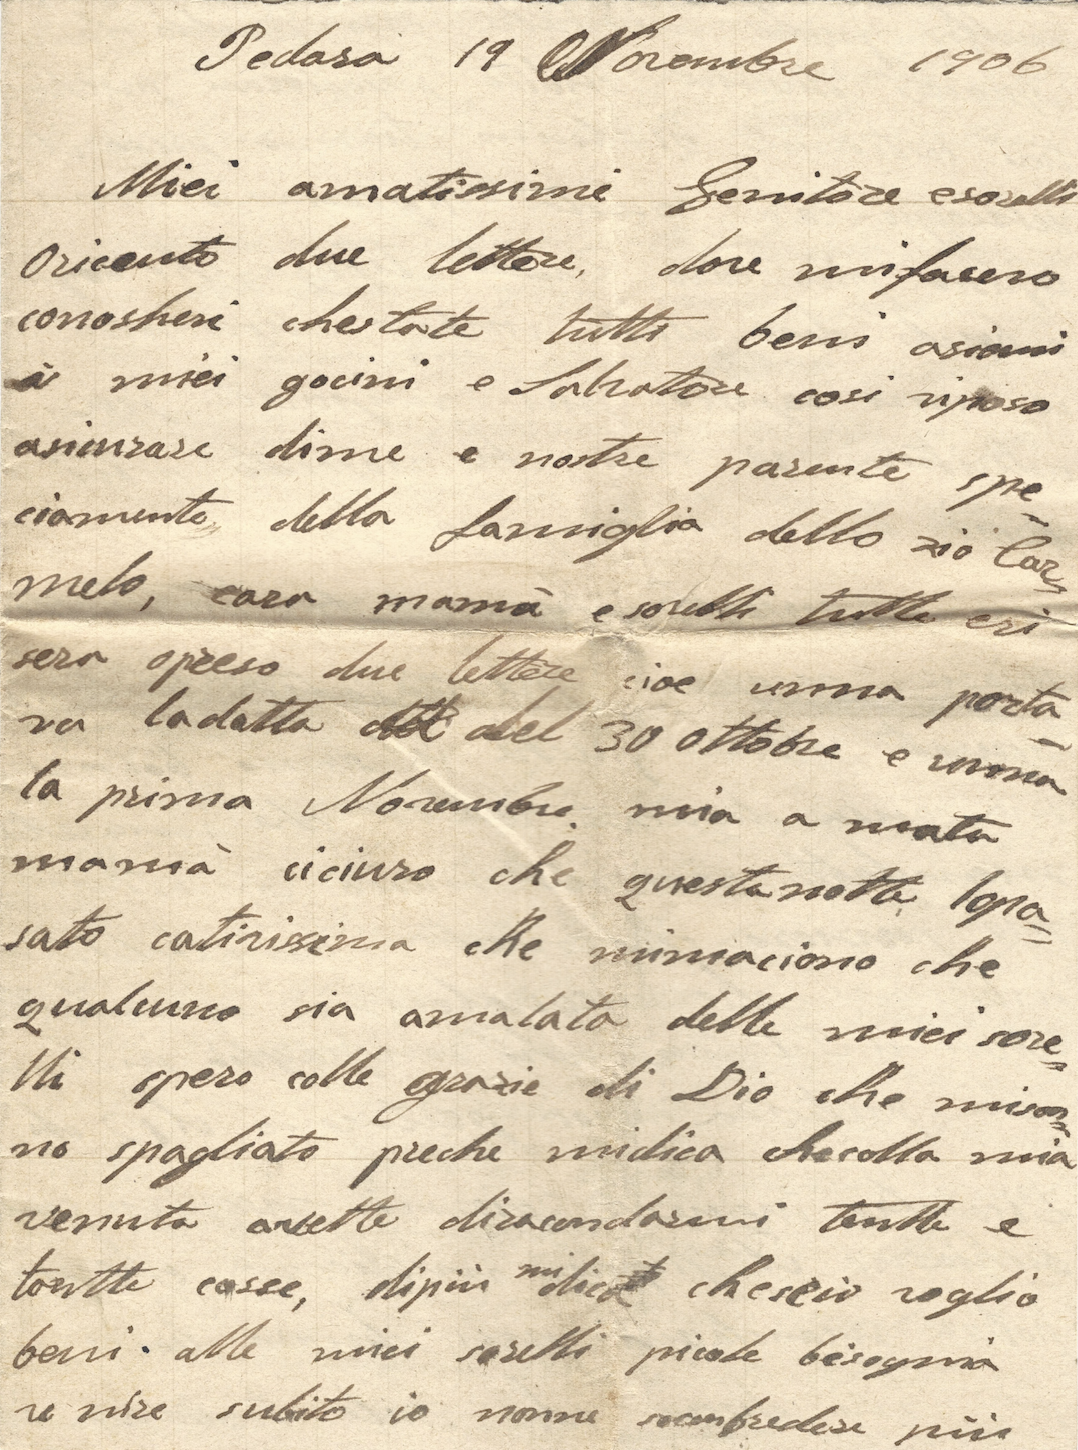 Pedara 19 Novembre 1906
Miei amatissimi Genitore esorelli
Oriceuto due lettere, dove mifacero
conosheri chestate tutti beni asiemi
à miei gocini e Salvatore cosi riposo
asicurare dime e nostre parente spe=
ciamente della famiglia dello zio Car=
melo, cara mamà esorelli tutte eri
sera opreso due lettere cioe unna porta=
va ladatta del 30 ottobre e unna
la prima Novembre. mia a mata
mamà ciciuro che questanotte, lopa=
sato cativissima che nimaciono che
qualcuno sia amalata delle miei sore=
lli spero colle grazie di Dio che miso=
no spagliato preche midica checolla mia
venuta avette diracondarmi tentte e
tontte cosse, dipiù mi dice chescio voglio
beni. alle miei sorelli picole bisognia
venire subito io nonne scanfredere più